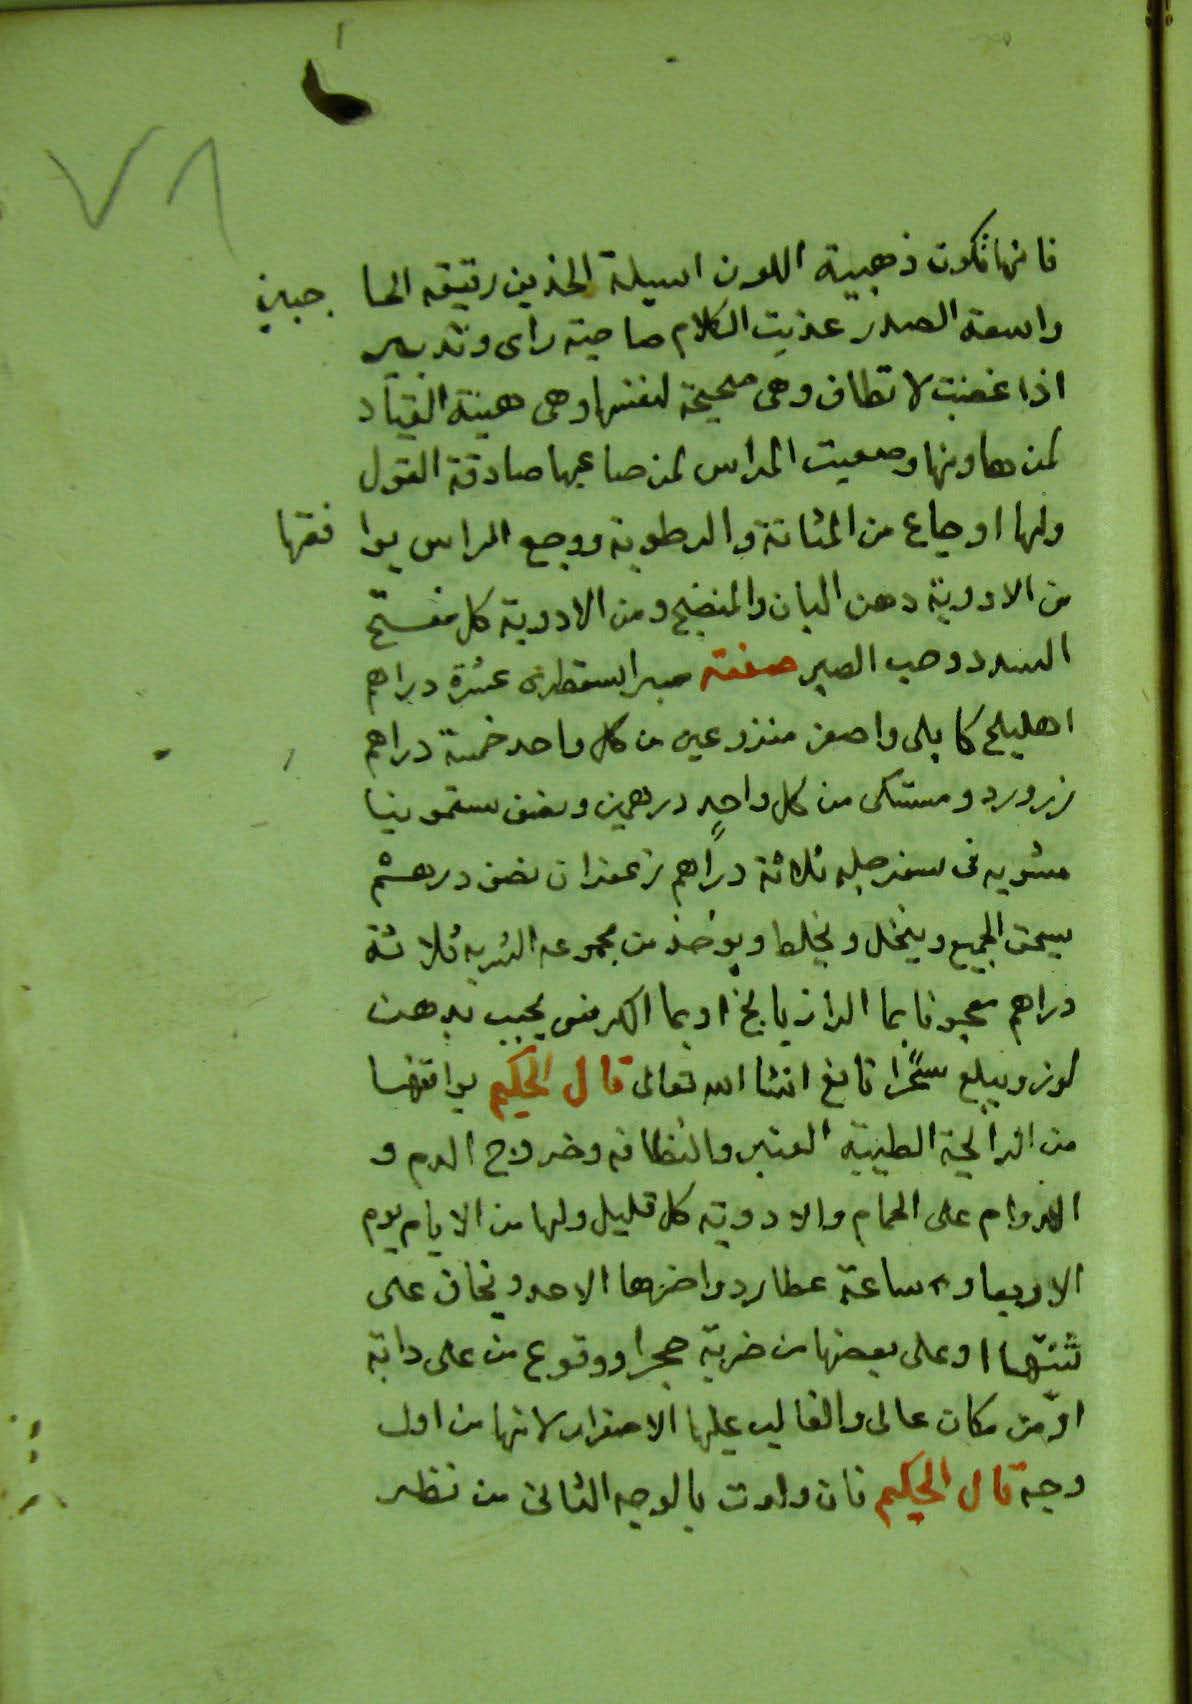 ٧٨
فانها تكون ذهبية اللون اسيلة الخدين رقيقه الحا جبين
واسعة الصدر عذبت الكلام صاحبة راى وتدبير
اذا غضبت لا تطاق وهى صحيحة لنفسها وهى هينة القياد
لمن هاونها وصعيت المراس لمن صاعبها صادقة القول
ولها اوجاع من المثانة والرطوبة ووجع الراس يوا فقها
من الادوية دهن البان والمنضج ومن الادوية كل مفستح
السدد وحب الصبر صفته صبر اسقطرى عشرة دراهم
اهليلج كابلى واصفر منزوعين من كل واحد خمسة دراهم
زرورد ومستكى من كل واحد درهمين ونصف سقمونيا
مشويه فى سفرجله ثلاثة دراهم زعفران نصف درهم
يسحق الجميع وينخل ويخلط ويوخذ من مجموعه الشربه ثلاثة
دراهم معجونا بما الرازيا بخ او بما الكرفس يحبب بدهن
لوز ويبلع سحرا نافع انشا الله تعالى قال الحكيم يوافقها
من الرايحة الطيبة العنبر والنظافه وخروج الدم و
الدوام على الحمام والادويه كل قليل ولها من الايام يوم
الاربعا وساعة عطارد واخرها الاحد ويخاف على
ثنتها او على بعضها من ضربة حجر او وقوع من على دابة
او من مكان عالى والغالب عليها الاصفرار لانها من اول
وجه قال الحكيم فان ولدت بالوجه الثانى من نظر